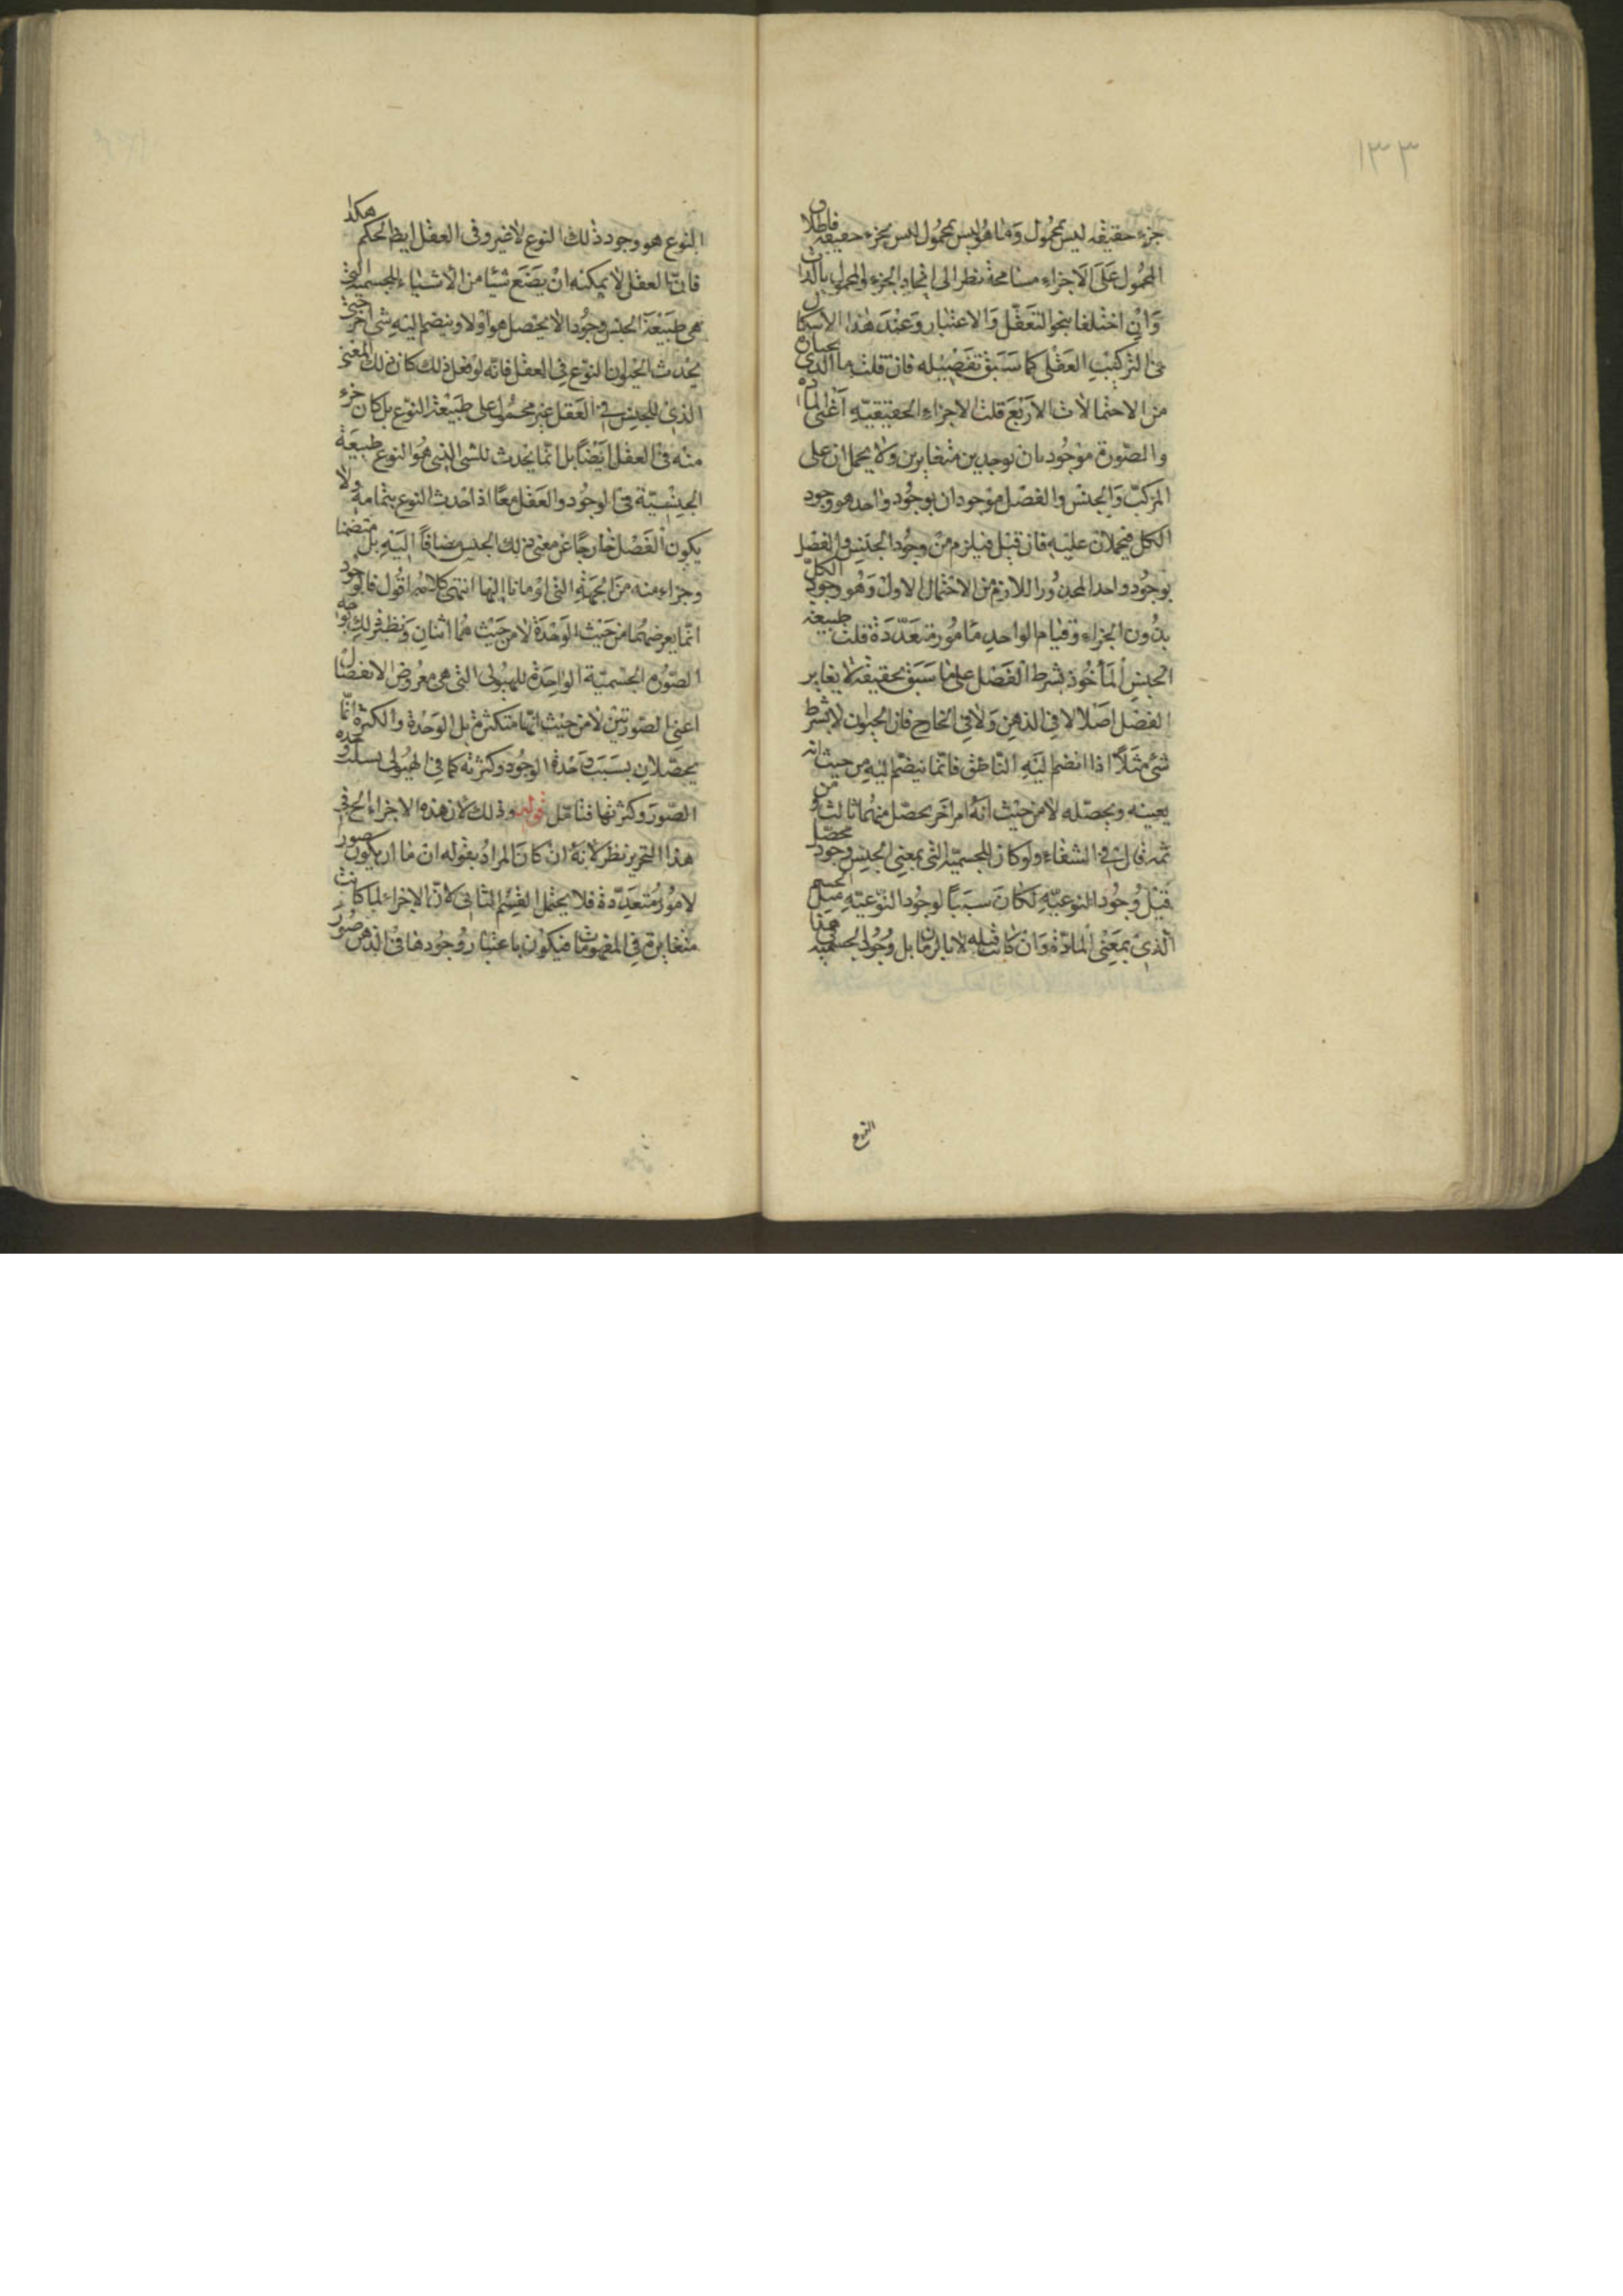 ١٣٣
جزء حقيقة ليس بمحمول وما هو ليس بمحمول ليس بجزء حقيقة فاطلاق
المحمول على الاجزاء مسامحة نظرا الى اتحاد الجزء والمحمول بالذات
وان اختلفا بنحو التعقل والاعتبار وعند هذا الاسكال
فى التركيب العقلى كما سبق تفصيله فان قلت ما الذى
من الاحتمالات الاربع قلت الاجزاء الحقيقيه اعنى المادة
والصورة موجودتان بوجدين متغايرين ولا يحملان على
المركب والجنس والفصل موجودان بوجود واحد هو وجود
الكل فيحملان عليه فان قيل فيلزم من وجود الجنس والفصل
بوجود واحد المحذور اللازم من الاحتمال الاول وهو وجود الكل
بدون الجزاء وقيام الواحد مامور متعددة قلت طبيعة
الجنس المأخوذ بشرط الفصل على ما سبق بحقيقته لا يغاير
الفصل اصلا لا فى الذهن ولا فى الخارج فان الحيوان لا بشرط
شئ مثلا اذا انضم اليه الناطق فانما ينضم اليه من حيث انه
يعينه ويحصله لا من حيث انه امر آخر يحصل منهما ثالث و من
ثمه قال فى الشفاء ولو كان للجسمية التى بمعنى الجنس وجود محصل
قبل وجود النوعيه لكان سببا لوجود النوعيه مثل الجسم
الذى بمعنى المادة وان كانت قبله لا بالزمان بل وجود الجسميه فى هذا
النوع
النوع هو وجود ذلك النوع لا غير وفى العقل ايضا الحكم هكذا
فان العقل لا يمكنه ان يضع شيئا من الاشياء للجسمية التى
هى طبيعة الجنس وجودا لا يحصل هو اولا وينضم اليه شى آخر حتى
يحدث الحيوان النوع فى العقل فانه لو فعل ذلك كان ذلك المعنى
الذى للجنس فى العقل غير محمول على طبيعة النوع بل كان جزء
منه فى العقل ايضا بل انما يحدث للشى الذى هو النوع طبيعة
الجنسية فى الوجود والعقل معا اذا حدث النوع بتمامه ولا
يكون الفصل خارجا عن معنى ذلك الجنس مضافا اليه بل متضمنا
وجزاء منه من الجهة التى اومانا اليها انتهى كلامه اقول فالوجود
انما يعرضهما من حيث الوحدة لا من حيث هما اثنان ونظير ذلك
الصورة الجسمية الواحدة للهيولى التى هى معروض الانفصال
اعنى الصورتين لا من حيث انها متكثرة بل الوحدة والكثرة انما
يحصلان بسبب وحدة الوجود وكثرته كما فى الهيولى بسبب وحدة
الصور وكثرتها فتامل قوله وذلك لان هذه الاجزاء الخ فى
هذا التحرير نظر لانه ان كان المراد بقوله ان ما ان يكون صور
لامور متعددة فلا يحتمل القسم الثانى لان الاجزاء لما كانت
متغايرة فى المفهومات فيكون باعتبار وجودها فى الذهن صور